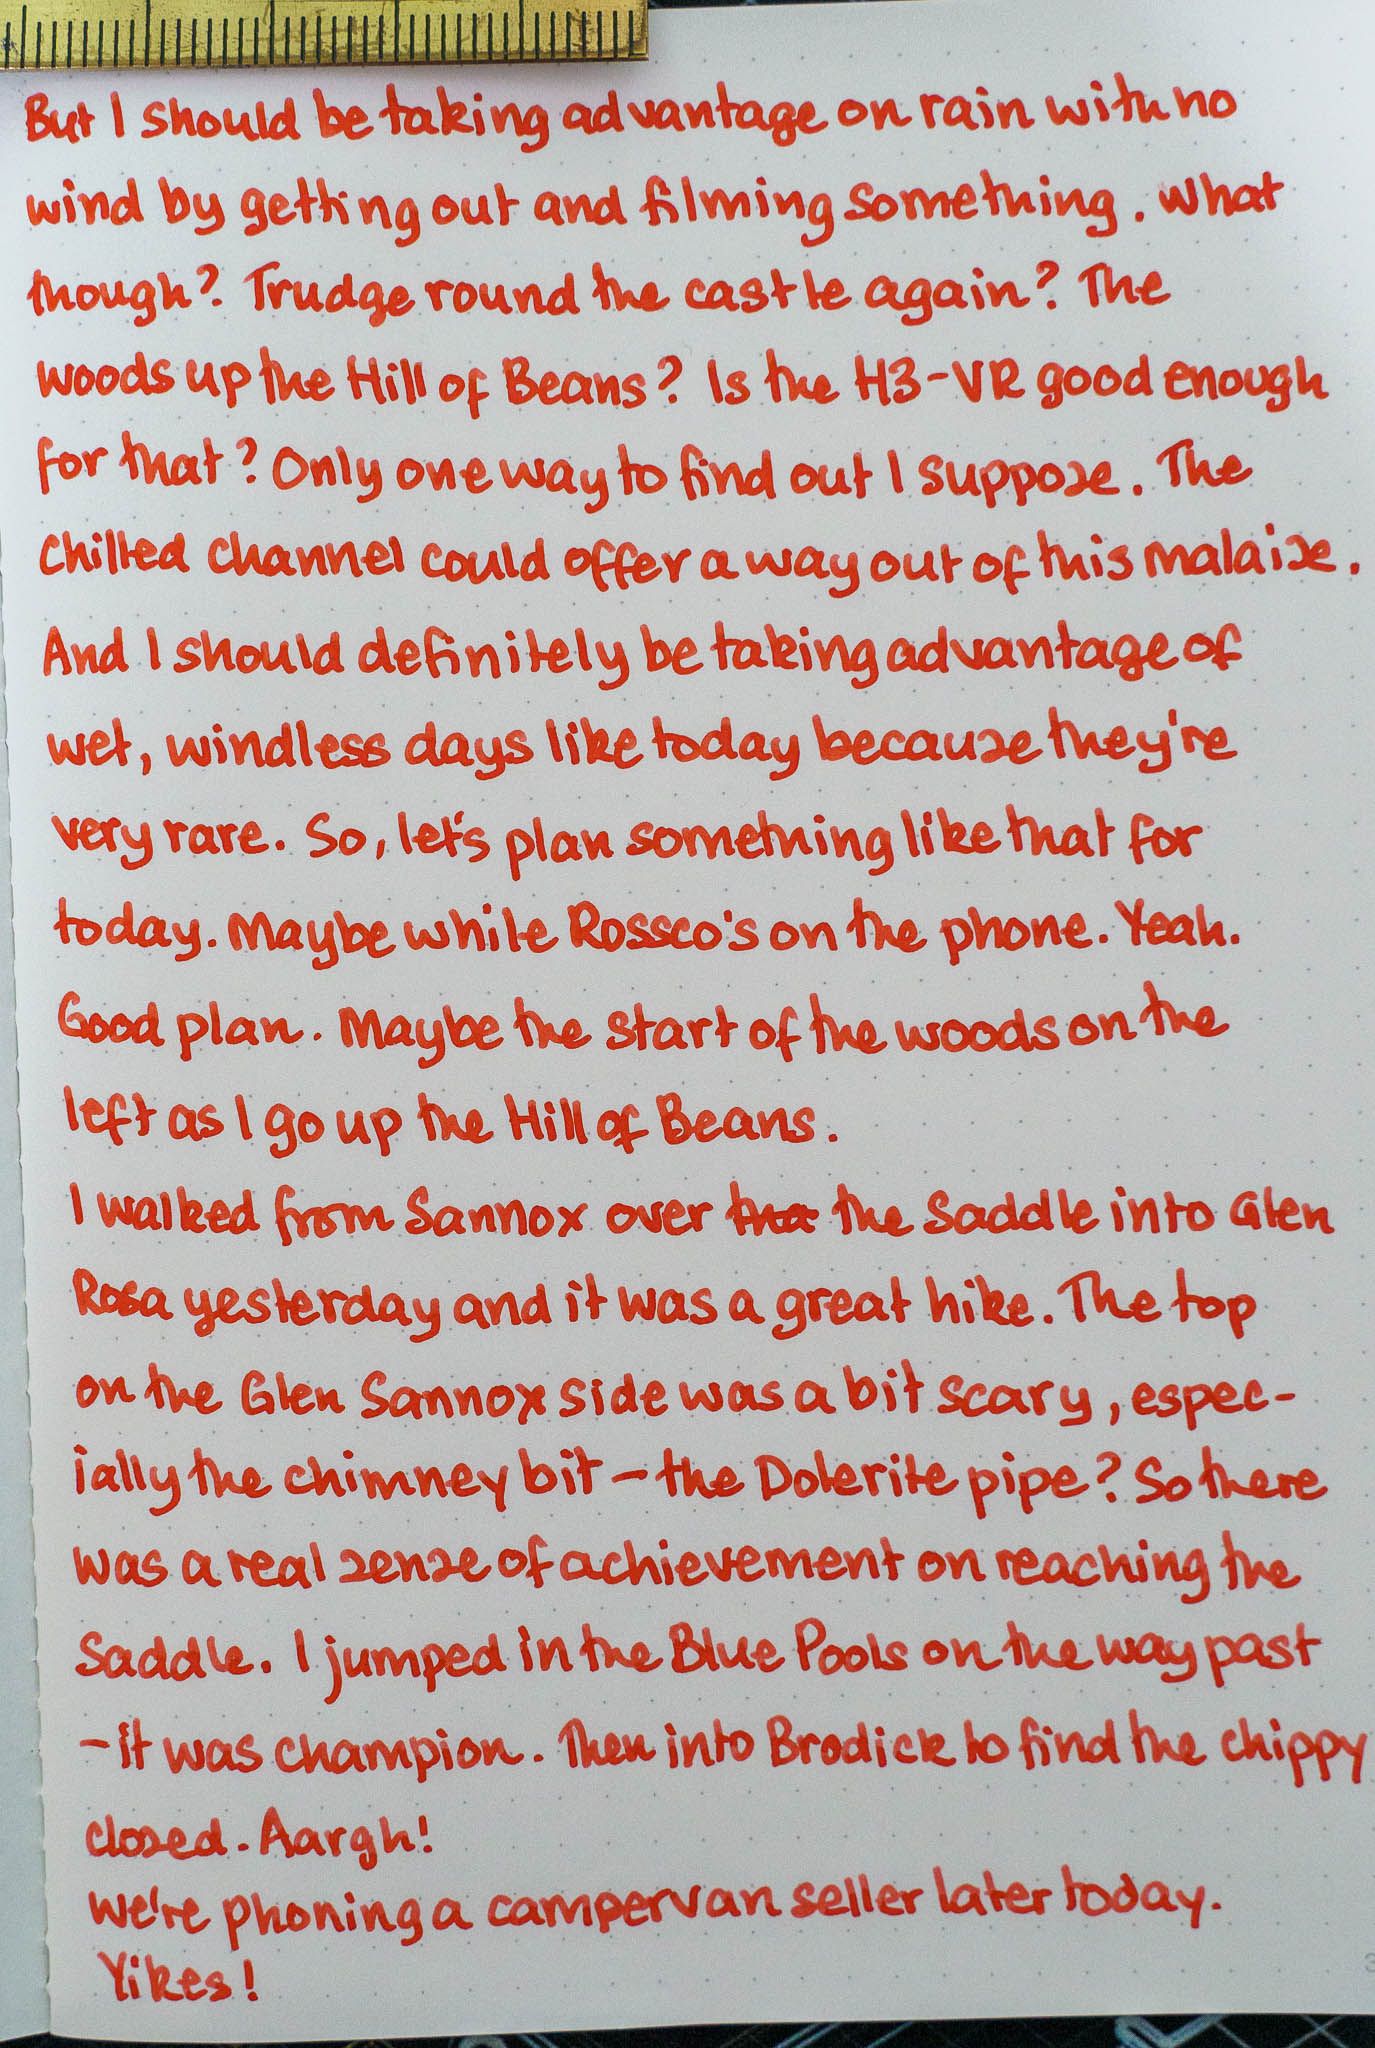 But I should be taking advantage on rain with no
wind by getting out and filming something. What
though? Trudge round the castle again? The
woods up the Hill of Beans? Is the H3-VR good enough
for that? Only one way to find out I suppose. The
Chilled channel could offer a way out of this malaise.
And I should definitely be taking advantage of
wet, windless days like today because they're
very rare. So, let's plan something like that for
today. Maybe while Rossco's on the phone. Yeah.
Good plan. Maybe the start of the woods on the
left as I go up the Hill of Beans.
I walked from Sannox over tha the Saddle into Glen
Rosa yesterday and it was a great hike. The top
on the Glen Sannox side was a bit scary, espec-
ially the chimney bit - the Dolerite pipe? So there
was a real sense of achievement on reaching the
Saddle. I jumped in the Blue Pools on the way past
- it was champion. Then into Brodick to find the chippy
closed. Aargh!
We're phoning a campervan seller later today.
Yikes!